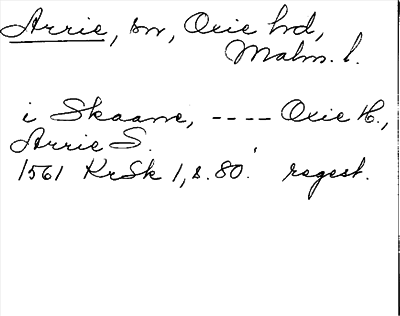 Arrie, sn, Oxie hd,
Malm. l.
i Skaane, ---- Oxie H.,
Arrie S.
1561 KrSk 1, s. 80. regest.